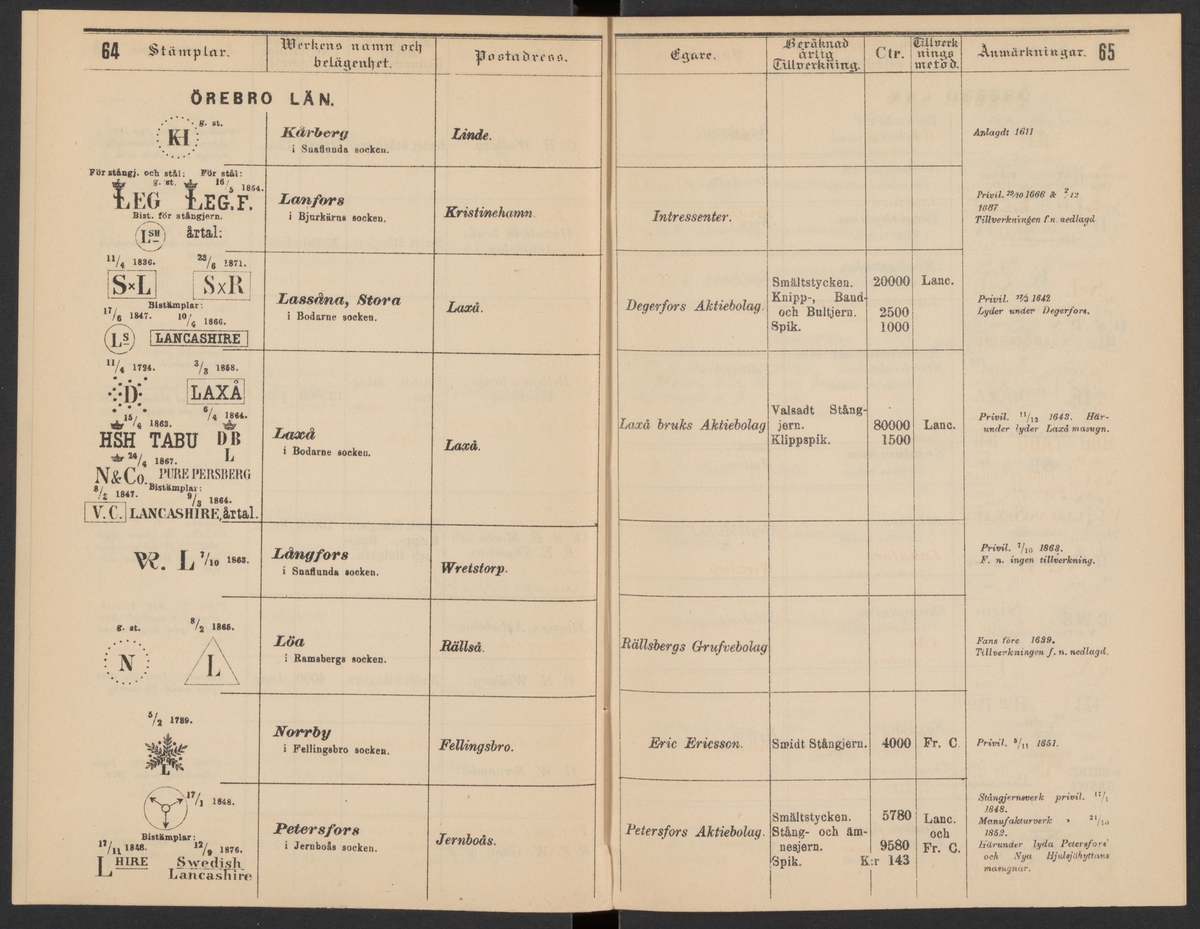 64 Stämplar. Werkens namn och belägenhet. Postadress. Egare. Beräknad årlig Tillverkning. Ctr. Tillverknings metod. Anmärkningar. 65
ÖREBRO LÄN.
g. st.
KH
Kårberg
i Snaflunda socken.
Linde.
Anlagdt 1611
För stångj. och stål: För stål:
g. st. 16/5 1854.
LEG LEG.F.
Bist. för stångjern.
LSH årtal:
Lanfors
i Bjurkärns socken.
Kristinehamn.
Intressenter.
1666 &
1687
Tillverkningen f. n. nedlagd
11/4 1836. 1871.
S×L S×R
Bistämplar:
17/6 1847. 10/4 1866.
LS LANCASHIRE
Lassåna, Stora
i Bodarne socken.
Laxå.
Degerfors Aktiebolag.
Smältstycken. 20000 Lanc.
Knipp-, Band-
och Bultjern. 2500
Spik. 1000
Privil. 1642
Lyder under Degerfors.
11/4 1724. 3/3 1858.
D LAXÅ
15/4 1863. 6/4 1864.
HSH TABU DB
L
24/4 1867.
N&Co. PURE PERSBERG
8/2 1847. Bistämplar: 9/3 1864.
V.C. LANCASHIRE, årtal.
Laxå
i Bodarne socken.
Laxå.
Laxå bruks Aktiebolag
Valsadt Stång-
jern. 80000 Lanc.
Klippspik. 1500
Privil. 11/12 1643. Här-
under lyder Laxå masugn.
W. L 7/10 1863.
Långfors
i Snaflunda socken.
Wretstorp.
Privil. 7/10 1863.
F. n. ingen tillverkning.
g. st. 8/2 1865.
N L
Löa
i Ramsbergs socken.
Rällså.
Rällsbergs Grufvebolag
Fans före 1639.
Tillverkningen f. n. nedlagd.
5/2 1789.
L
Norrby
i Fellingsbro socken.
Fellingsbro.
Eric Ericsson.
Smidt Stångjern. 4000 Fr. C.
Privil. 5/11 1851.
17/1 1848.
Bistämplar:
17/11 1848. 12/9 1876.
LHIRE Swedish
Lancashire
Petersfors
i Jernboås socken.
Jernboås.
Petersfors Aktiebolag.
Smältstycken. 5780 Lanc.
Stång- och äm- och
nesjern. 9580 Fr. C.
Spik. K:r 143
Stångjernsverk privil. 17/1
1848.
Manufakturverk » 21/10
1852.
Härunder lyda Petersfors'
och Nya Hjulsjöhyttans
masugnar.